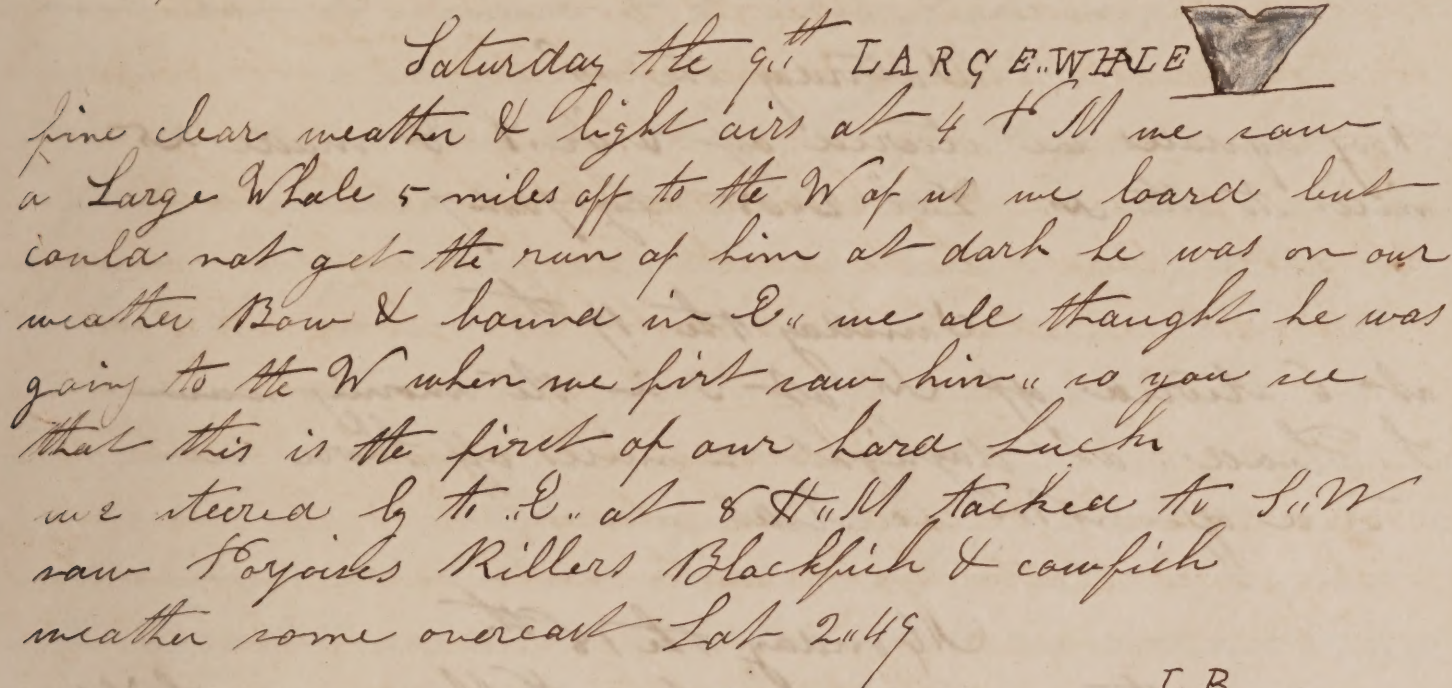 Saturday the 9,,th LARGE,,WHALE
fine clear weather & light airs at 4 P M we saw
a Large Whale 5 miles off to the W of us we loard but
could not get the run of him at dark he was on our
weather Bow & bound in E,, we all thought he was
going to the W when we firt saw him,, so you see
that this is the first of our hard Luck
we steered by to ,,E,, at 8 A,,M tacked to S,,W
saw Porpoises Killers Blackfish & cowfish
weather some overcast Lat 2,,49
J B